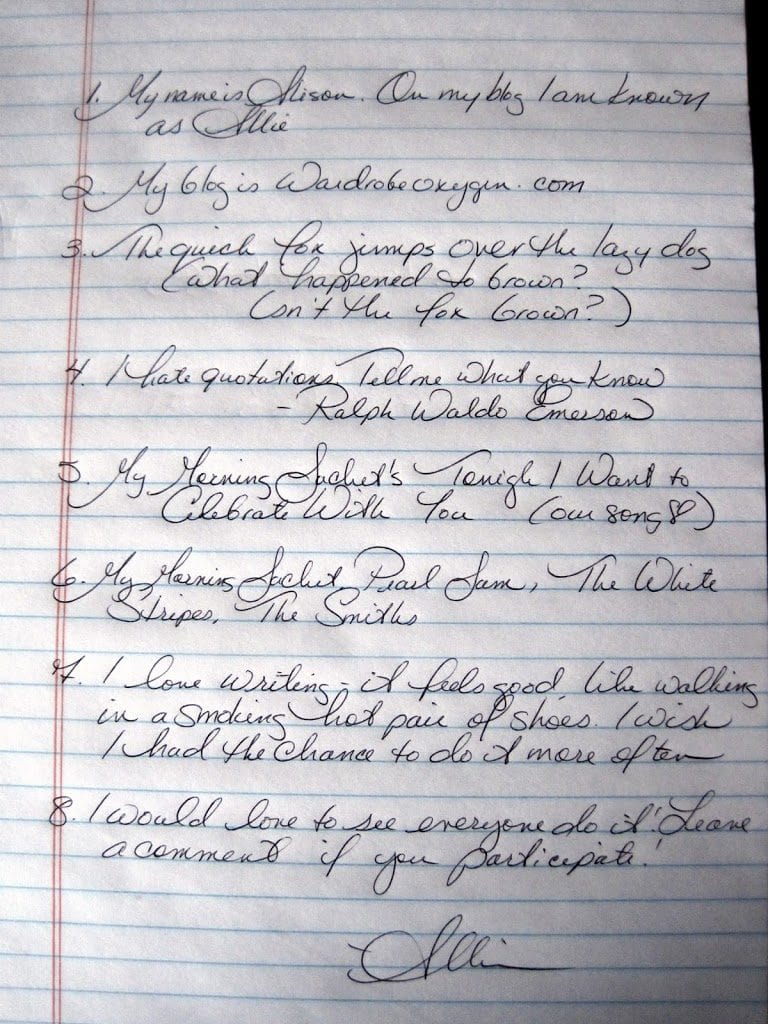 1. My name is Alison. On my blog I am known
as Allie
2. My blog is Wardrobeoxygen.com
3. The quick fox jumps over the lazy dog
(what happened to brown?
Isn't the fox brown?)
4. I hate quotations. Tell me what you know
- Ralph Waldo Emerson
5. My Morning Jacket's Tonigh I Want to
Celebrate With You (our song)
6. My Morning Jacket, Pearl Jam, The White
Stripes, The Smiths
7. I love writing - it feels good, like walking
in a smoking hot pair of shoes. I wish
I had the chance to do it more often
8. I would love to see everyone do it! Leave
a comment if you participate!
Allie